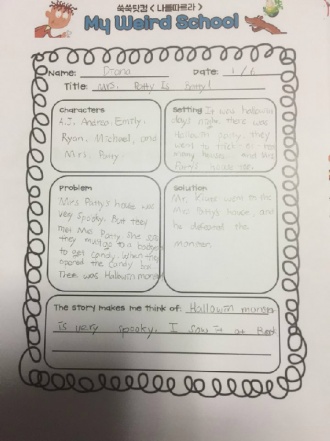 쑥쑥닷컴 < 나를따르라 >
My Weird School
Name: Diana Date: 1/1
Title: Mrs. Patty Is Batty!
Characters
A.J. Andrea. Emily.
Ryan. Michael, and
Mrs. Patty.
Setting It was hallowin
days night. there was
Hallowin party. they
went to trick
many houses. and Mrs
Problem
Mrs Patty's house was
very spooky. But they
met Mrs Patty. She said
they must go to a
to get candy. When they
opened the candy box
There was Hallowin monster
Solution
Mr. Klutz went to Mrs
Mrs Patty's house, and
he defeated the
monster.
The story makes me think of: Hallowin monster
is very spooky. I saw it at Book